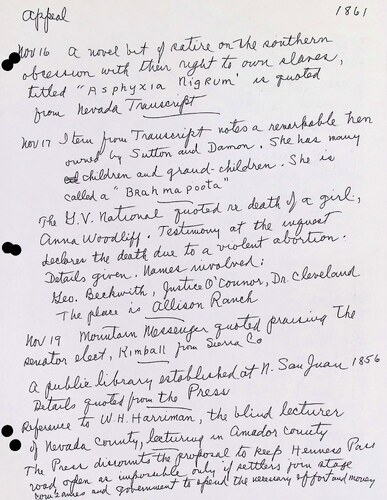 Appeal 1861
Nov 16 A novel bit of satire on the southern
obsession with their right to own slaves,
titled "Asphyxia Nigrum" is quoted
from Nevada Transcript
Nov 17 Item from Transcript notes a remarkable hen
owned by Sutton and Damon. She has many
children and grand-children. She is
called a "Brahmapoota"
The G.V. National quoted re death of a girl,
Anna Woodliff. Testimony at the inquest
declares the death due to a violent abortion.
Details given. Names involved:
Geo. Beckwith, Justice O'Connor, Dr. Cleveland
The place is Allison Ranch
Nov 19 Mountain Messenger quoted praising the
senator elect, Kimball from Sierra Co
A public library established at N. San Juan 1856
Details quoted from the Press
Reference to W.H. Harriman, the blind lecturer
of Nevada county, lecturing in Amador county
The Press discounts the proposal to keep Henness Pass
road open as impossible only if settlers join stage
companies and government to spend the necessary effort and money